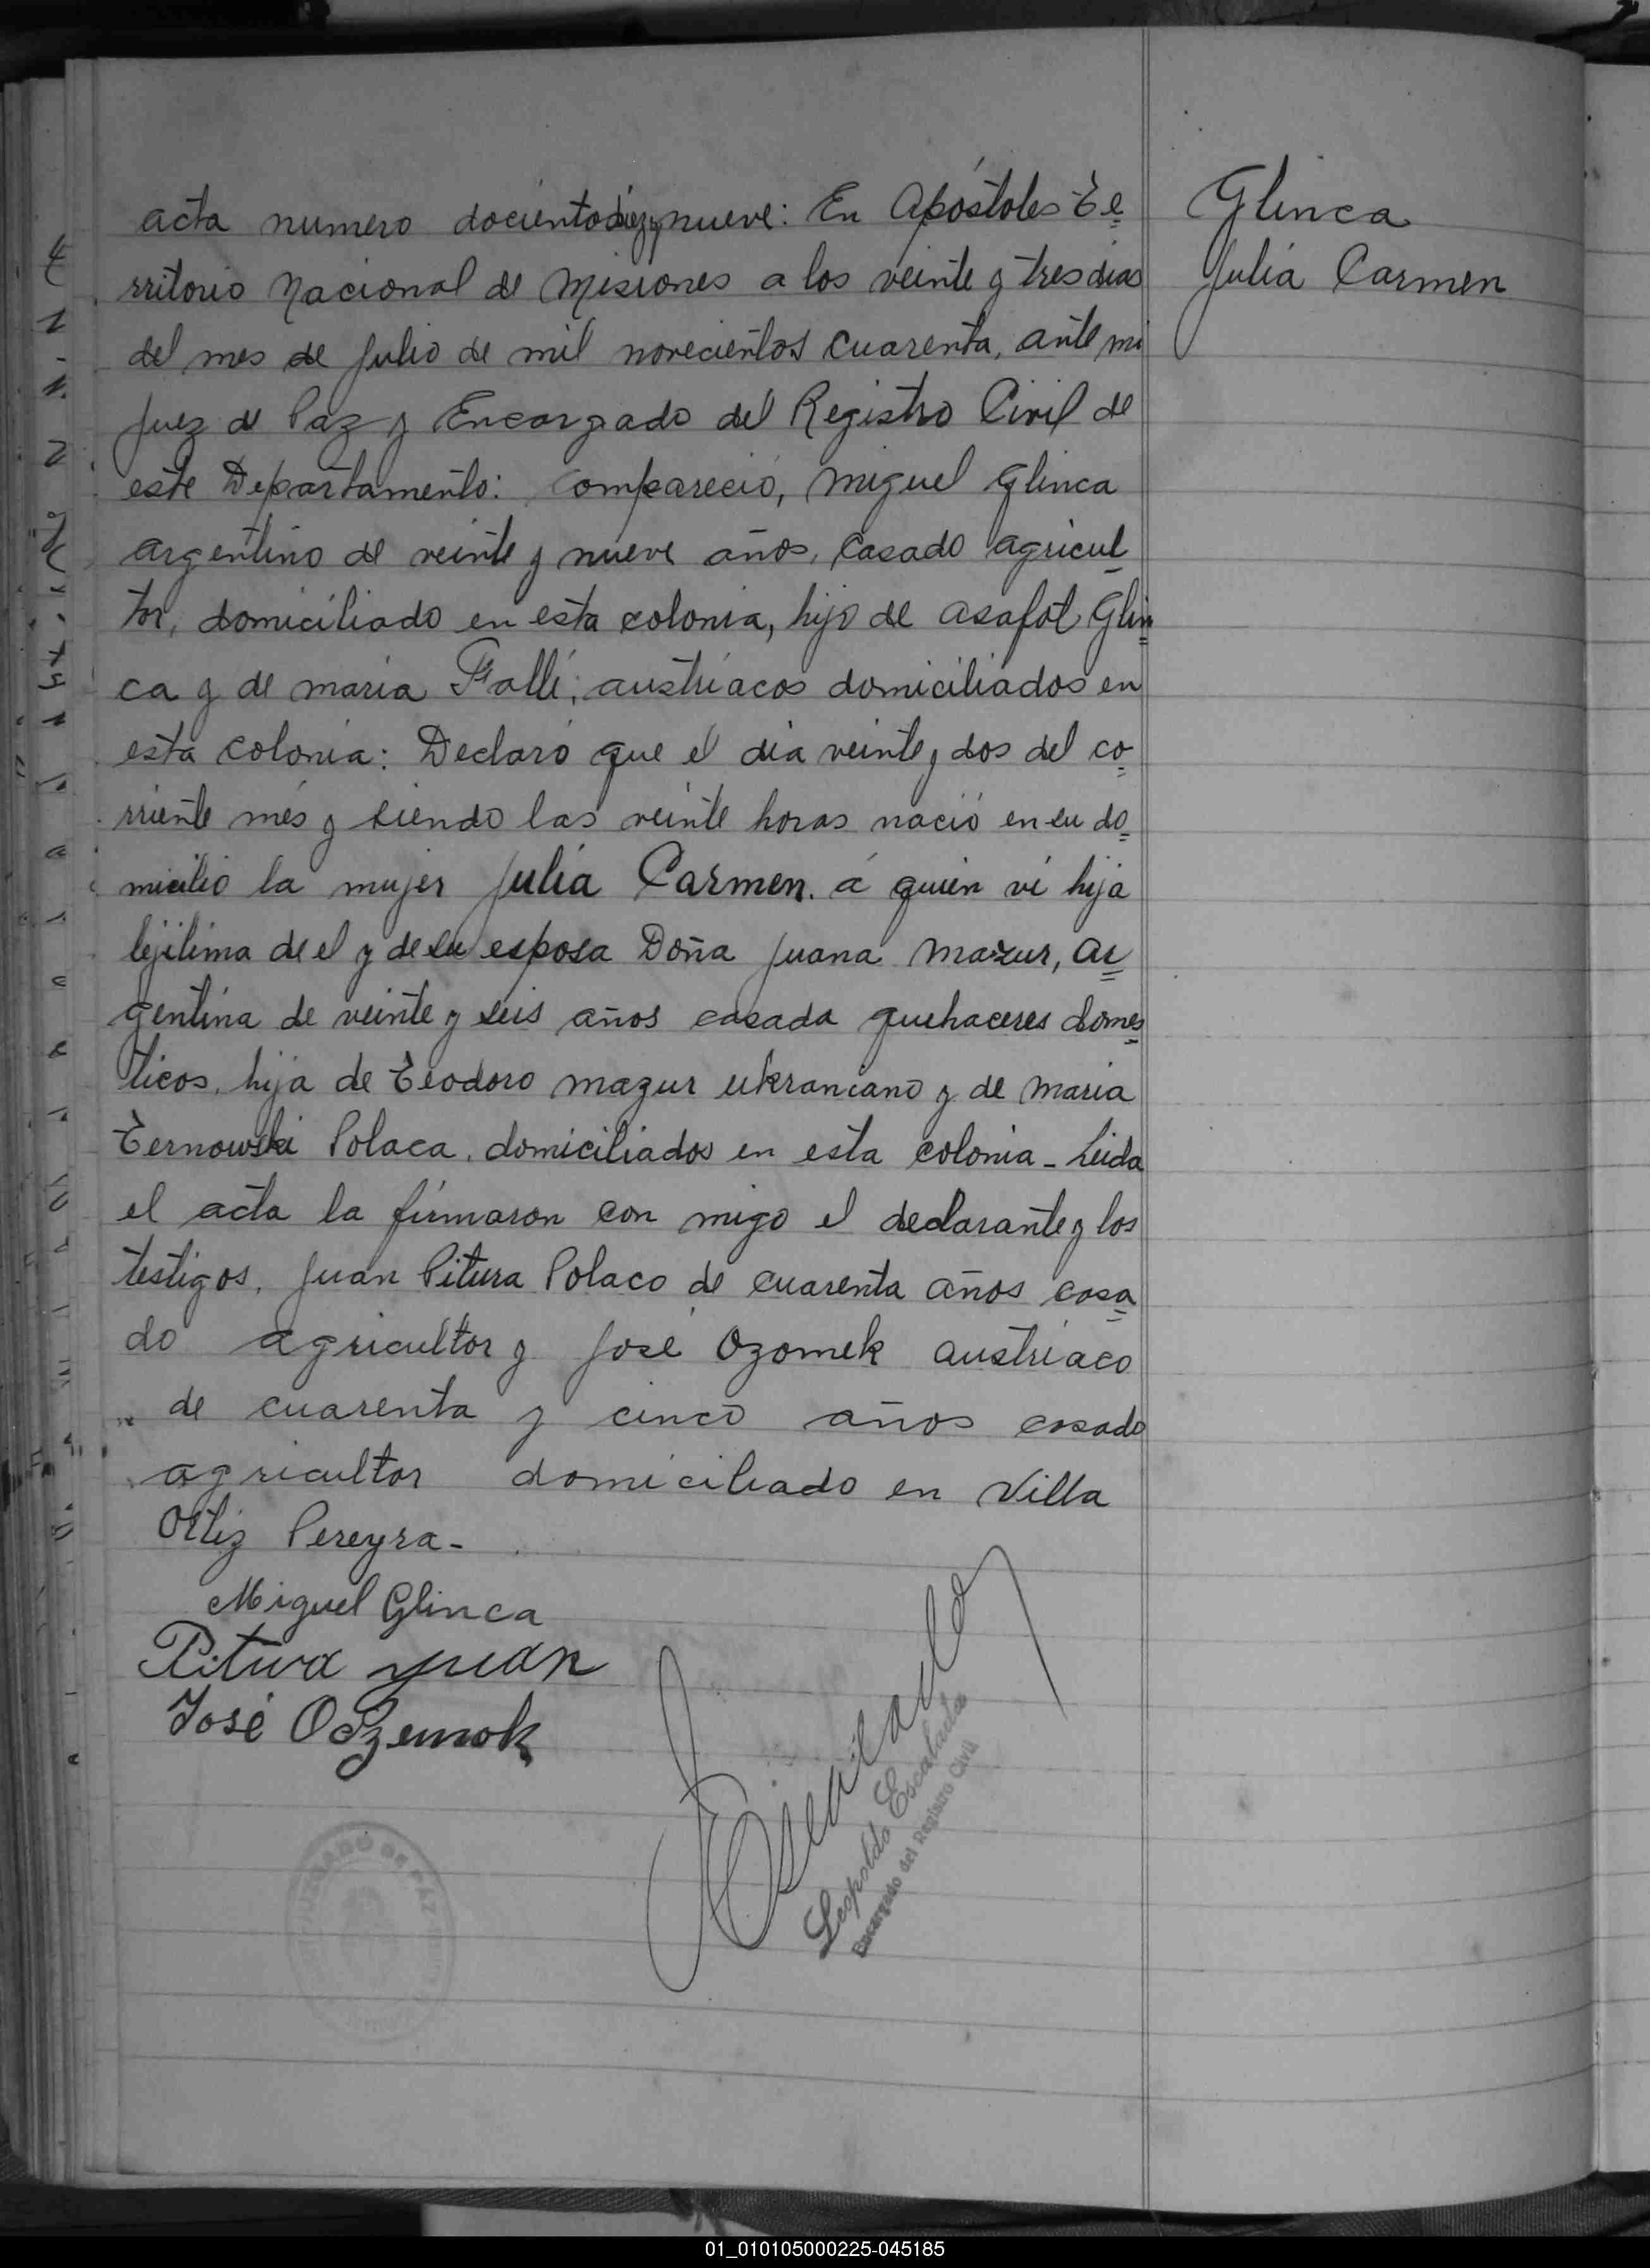 acta numero docientodiezynueve: En Apóstoles Te=
rritorio Nacional de Misiones a los veinte y tres dias
del mes de Julio de mil novecientos cuarenta, ante mi
Juez de Paz y Encargado del Registro Civil de
este Departamento: Compareció, Miguel Glinca
argentino de veinte y nueve años, casado agricul-
tor, domiciliado en esta colonia, hijo de Asafat Glin=
ca y de maria Falli; austriacos domiciliados en
esta colonia: Declaró que el dia veinte y dos del co=
rriente més y siendo las veinte horas nació en su do=
micilio la mujer Julia Carmen. á quien vi hija
lejitima de el y de su esposa Doña Juana Mazur, ar=
gentina de veinte y seis años casada quehaceres domes=
ticos, hija de Teodoro Mazur ukraniano y de Maria
Ternowski Polaca, domiciliados en esta colonia - Leida
el acta la firmaron con migo el declarante y los
testigos, Juan Pitura Polaco de cuarenta años casa=
do agricultor y José Ozomek austriaco
de cuarenta y cinco años casado
agricultor domiciliado en Villa
Ortiz Pereyra -
Miguel Glinca
Pitura Juan
José Oczemok
Leopoldo Escalada
Encargado del Registro Civil
JUZGADO DE PAZ
Glinca
Julia Carmen
01_010105000225-045185